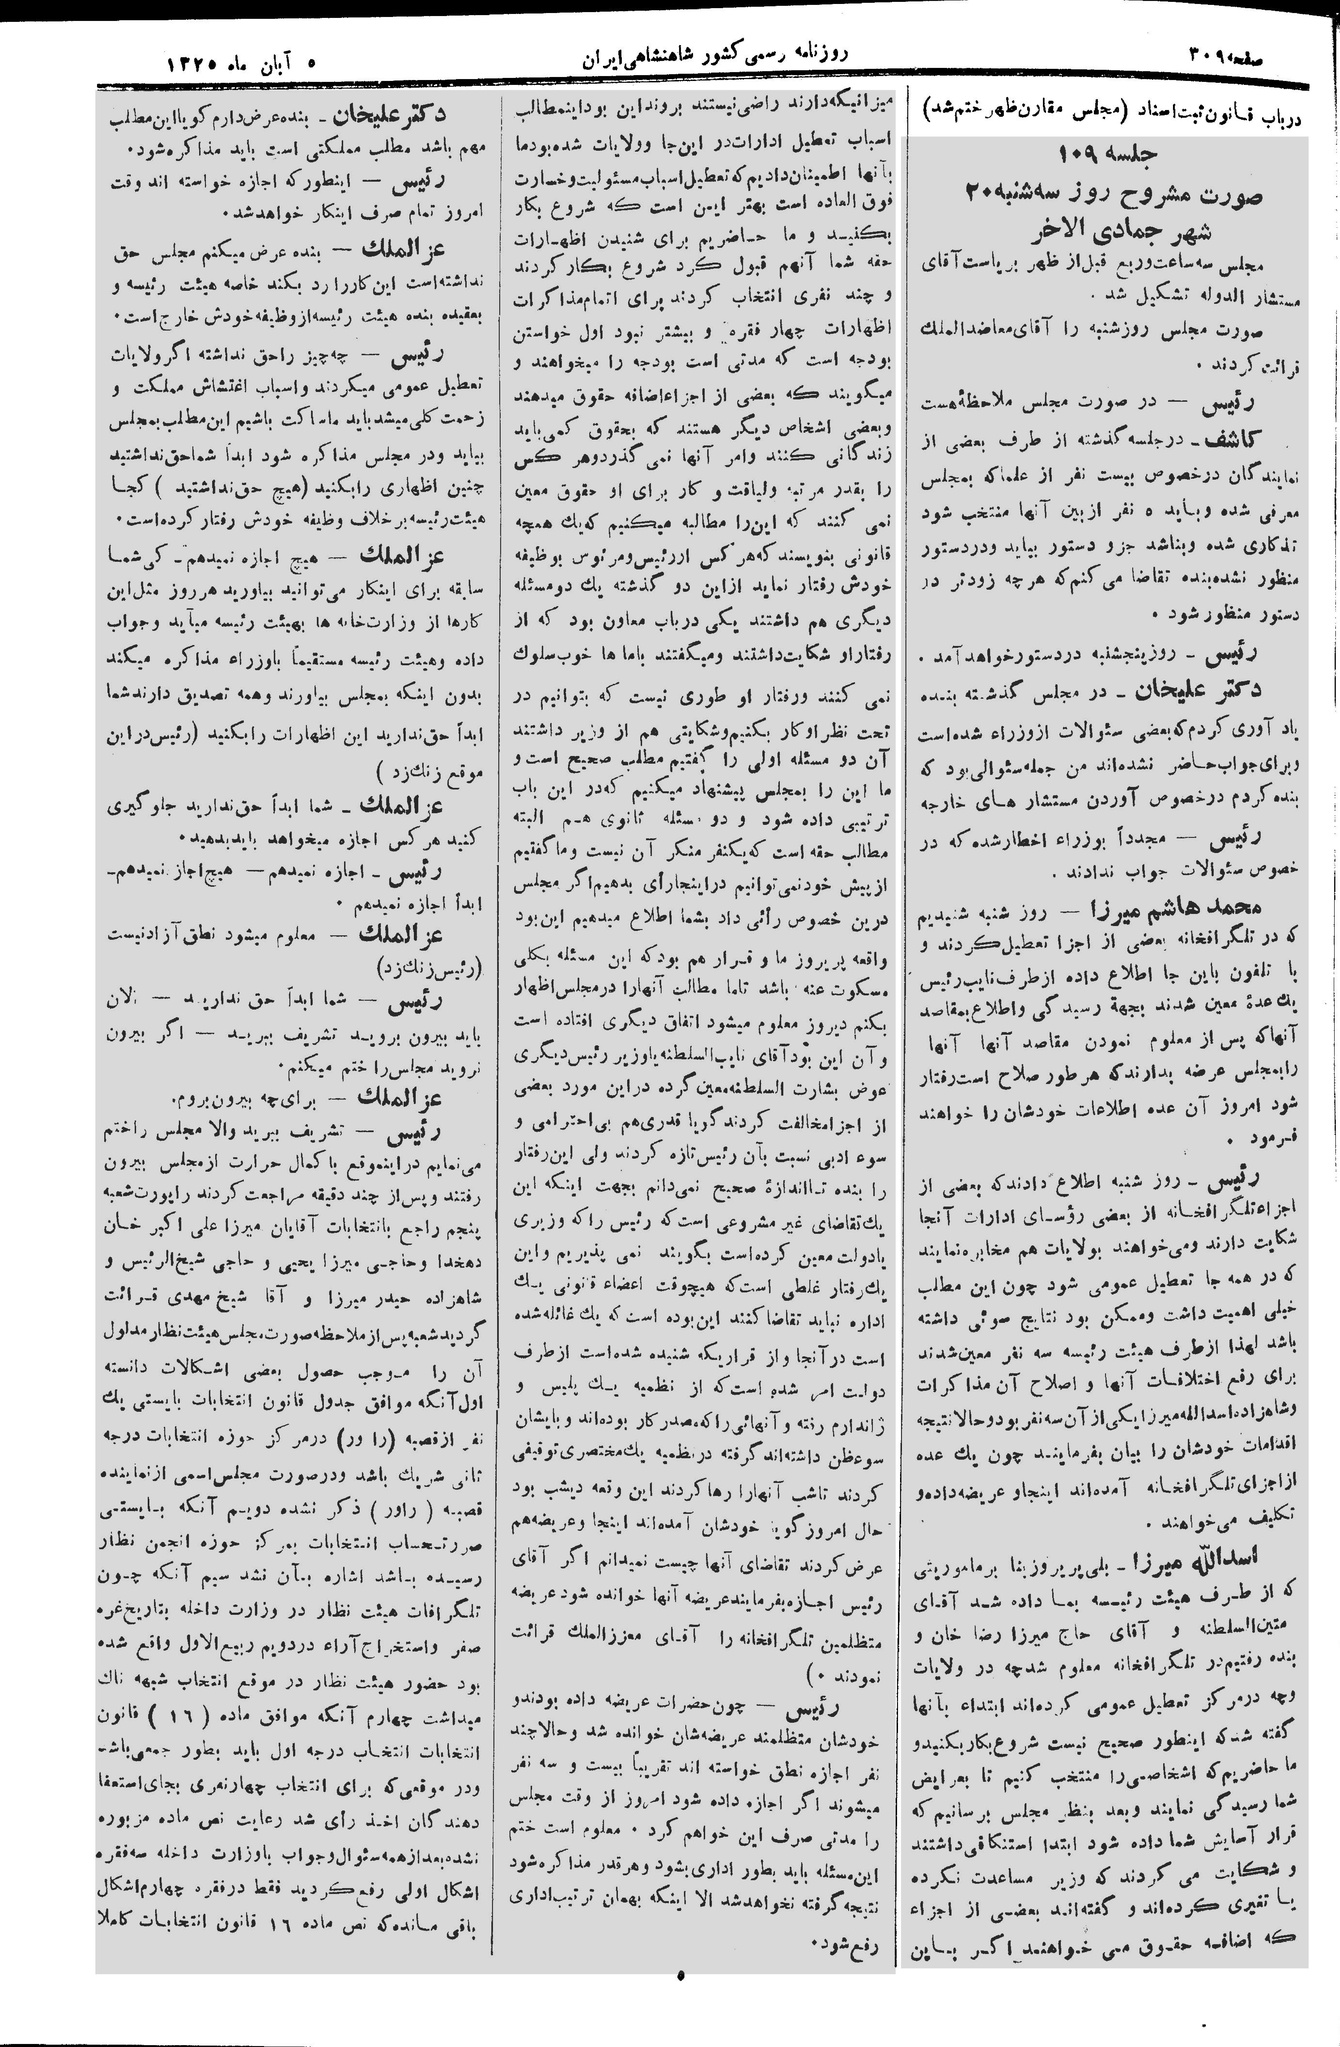 صفحه ۳۰۹
روزنامه رسمی کشور شاهنشاهی ایران
۵ آبان ماه ۱۳۲۵
درباب قانون ثبت اسناد (مجلس مقارن ظهر ختم شد)
جلسه ۱۰۹
صورت مشروح روز سه شنبه ۲۰
شهر جمادی الاخر
مجلس سه ساعت و ربع قبل از ظهر بریاست آقای
مستشار الدوله تشکیل شد .
صورت مجلس روز شنبه را آقای معاضد الملک
قرائت کردند .
رئیس — در صورت مجلس ملاحظهٔ هست
کاشف ـ در جلسه گذشته از طرف بعضی از
نمایندگان درخصوص بیست نفر از علما که بمجلس
معرفی شده و باید ۵ نفر از بین آنها منتخب شود
تذکاری شده و بناشد جزو دستور بیاید و در دستور
منظور نشده بنده تقاضا می کنم که هرچه زودتر در
دستور منظور شود .
رئیس ـ روز پنجشنبه در دستور خواهد آمد .
دکتر علیخان ـ در مجلس گذشته بنده
یاد آوری کردم که بعضی سئوالات از وزراء شده است
و برای جواب حاضر نشده اند من جمله سئوالی بود که
بنده کردم درخصوص آوردن مستشار های خارجه
رئیس — مجدداً بوزراء اخطار شده که در
خصوص سئوالات جواب ندادند .
محمد هاشم میرزا — روز شنبه شنیدیم
که در تلگرافخانه بعضی از اجزا تعطیل کردند و
با تلفون باین جا اطلاع داده از طرف نایب رئیس
یك عدهٔ معین شدند بجهة رسیدگی و اطلاع بمقاصد
آنها که پس از معلوم نمودن مقاصد آنها آنها
را بمجلس عرضه بدارند که هر طور صلاح است رفتار
شود امروز آن عده اطلاعات خودشان را خواهند
فرمود .
رئیس ـ روز شنبه اطلاع دادند که بعضی از
اجزاء تلگرافخانه از بعضی رؤسای ادارات آنجا
شکایت دارند و می خواهند بولایات هم مخابره نمایند
که در همه جا تعطیل عمومی شود چون این مطلب
خیلی اهمیت داشت و ممکن بود نتایج سوئی داشته
باشد لهذا از طرف هیئت رئیسه سه نفر معین شدند
برای رفع اختلافات آنها و اصلاح آن مذاکرات
و شاهزاده اسدالله میرزا یکی از آن سه نفر بود و حالا نتیجه
اقدامات خودشان را بیان بفرمایند چون یك عده
از اجزای تلگرافخانه آمده اند اینجا و عریضه داده و
تکلیف می خواهند .
اسدالله میرزا ـ بلی پریروز بنا بر ماموریتی
که از طرف هیئت رئیسه بما داده شد آقای
متین السلطنه و آقای حاج میرزا رضا خان و
بنده رفتیم در تلگرافخانه معلوم شد چه در ولایات
و چه در مرکز تعطیل عمومی کرده اند ابتداء بآنها
گفته شد که اینطور صحیح نیست شروع بکار بکنید و
ما حاضریم که اشخاصی را منتخب کنیم تا بعرایض
شما رسیدگی نمایند و بعد بنظر مجلس برسانیم که
قرار آسایش شما داده شود ابتدا استنکافی داشتند
و شکایت می کردند که وزیر مساعدت نکرده
یا تغیری کرده اند و گفته اند بعضی از اجزاء
که اضافه حقوق می خواهند اگر باین
میزانیکه دارند راضی نیستند بروند این بود اینمطالب
اسباب تعطیل ادارات در این جا و ولایات شده بود ما
بآنها اطمینان دادیم که تعطیل اسباب مسئولیت و خسارت
فوق العاده است بهتر این است که شروع بکار
بکنید و ما حاضریم برای شنیدن اظهارات
حقه شما آنهم قبول کرد شروع بکار کردند
و چند نفری انتخاب کردند برای اتمام مذاکرات
اظهارات چهار فقره و بیشتر نبود اول خواستن
بودجه است که مدتی است بودجه را میخواهند و
میگویند که بعضی از اجزاء اضافه حقوق میدهند
و بعضی اشخاص دیگر هستند که بحقوق کمی باید
زندگانی کنند و امر آنها نمی گذرد و هر کس
را بقدر مرتبه و لیاقت و کار برای او حقوق معین
نمی کنند که این را مطالبه میکنیم که یك همچه
قانونی بنویسند که هر کس از رئیس و مرئوس بوظیفه
خودش رفتار نماید از این دو گذشته یك دو مسئله
دیگری هم داشتند یکی درباب معاون بود که از
رفتار او شکایت داشتند و میگفتند با ما ها خوب سلوك
نمی کنند و رفتار او طوری نیست که بتوانیم در
تحت نظر او کار بکنیم و شکایتی هم از وزیر داشتند
آن دو مسئله اولی را گفتیم مطلب صحیح است و
ما این را بمجلس پیشنهاد میکنیم که در این باب
ترتیبی داده شود و دو مسئله ثانوی هم البته
مطالب حقه است که یکنفر منکر آن نیست و ما گفتیم
از پیش خود نمی توانیم در اینجا رأی بدهیم اگر مجلس
درین خصوص رأئی داد بشما اطلاع میدهیم این بود
واقعه پریروز ما و قرار هم بود که این مسئله بکلی
مسکوت عنه باشد تا ما مطالب آنها را در مجلس اظهار
بکنم دیروز معلوم میشود اتفاق دیگری افتاده است
و آن این بود آقای نایب السلطنه یا وزیر رئیس دیگری
عوض بشارت السلطنه معین کرده در این مورد بعضی
از اجزا مخالفت کردند گویا قدری هم بی احترامی و
سوء ادبی نسبت بآن رئیس تازه کردند ولی این رفتار
را بنده تا اندازهٔ صحیح نمی دانم بجهت اینکه این
یك تقاضای غیر مشروعی است که رئیس را که وزیری
یا دولت معین کرده است بگویند نمی پذیریم و این
یك رفتار غلطی است که هیچوقت اعضاء قانونی یك
اداره نباید تقاضا کنند این بوده است که یك غائله شده
است در آنجا و از قراریکه شنیده شده است از طرف
دولت امر شده است که از نظمیه یك پلیس و
ژاندارم رفته و آنهائی را که مصدر کار بوده اند و بایشان
سوء ظن داشته اند گرفته در نظمیه یك مختصری توقیفی
کردند تا شب آنها را رها کردند این وقعه دیشب بود
حال امروز گویا خودشان آمده اند اینجا و عریضه هم
عرض کردند تقاضای آنها چیست نمیدانم اگر آقای
رئیس اجازه بفرمایند عریضه آنها خوانده شود عریضه
متظلمین تلگرافخانه را آقای معزز الملك قرائت
نمودند ۰)
رئیس — چون حضرات عریضه داده بودند و
خودشان متظلمند عریضه شان خوانده شد و حالا چند
نفر اجازه نطق خواسته اند تقریباً بیست و سه نفر
میشوند اگر اجازه داده شود امروز از وقت مجلس
را مدتی صرف این خواهم کرد ۰ معلوم است ختم
این مسئله باید بطور اداری بشود و هر قدر مذاکره شود
نتیجه گرفته نخواهد شد الا اینکه بهمان ترتیب اداری
رفع شود.
دکتر علیخان ـ بنده عرض دارم گویا این مطلب
مهم باشد مطلب مملکتی است باید مذاکره شود.
رئیس — اینطور که اجازه خواسته اند وقت
امروز تمام صرف اینکار خواهد شد.
عز الملك — بنده عرض میکنم مجلس حق
نداشته است این کار را رد بکند خاصه هیئت رئیسه و
بعقیده بنده هیئت رئیسه از وظیفه خودش خارج است.
رئیس — چه چیز را حق نداشته اگر ولایات
تعطیل عمومی میکردند و اسباب اغتشاش مملکت و
زحمت کلی میشد باید ما ساکت باشیم این مطلب بمجلس
بیاید و در مجلس مذاکره شود ابداً شما حق نداشتید
چنین اظهاری را بکنید (هیچ حق نداشتید) کجا
هیئت رئیسه بر خلاف وظیفه خودش رفتار کرده است.
عز الملك — هیچ اجازه نمیدهم ـ کی شما
سابقه برای اینکار می توانید بیاورید هر روز مثل این
کارها از وزارت خانه ها بهیئت رئیسه میآید و جواب
داده و هیئت رئیسه مستقیماً با وزراء مذاکره میکند
بدون اینکه بمجلس بیاورند و همه تصدیق دارند شما
ابداً حق ندارید این اظهارات را بکنید (رئیس در این
موقع زنك زد)
عز الملك ـ شما ابداً حق ندارید جلوگیری
کنید هر کس اجازه میخواهد باید بدهید.
رئیس ـ اجازه نمیدهم — هیچ اجازه نمیدهم ـ
ابداً اجازه نمیدهم .
عز الملك — معلوم میشود نطق آزاد نیست
(رئیس زنك زد)
رئیس — شما ابداً حق ندارید — الان
باید بیرون بروید تشریف ببرید — اگر بیرون
نروید مجلس را ختم میکنم.
عز الملك — برای چه بیرون بروم.
رئیس — تشریف ببرید والا مجلس را ختم
می نمایم در اینموقع با کمال حرارت از مجلس بیرون
رفتند و پس از چند دقیقه مراجعت کردند راپورت شعبه
پنجم راجع بانتخابات آقایان میرزا علی اکبر خان
دهخدا و حاجی میرزا یحیی و حاجی شیخ الرئیس و
شاهزاده حیدر میرزا و آقا شیخ مهدی قرائت
گردید شعبه پس از ملاحظه صورت مجلس هیئت نظار مدلول
آن را موجب حصول بعضی اشکالات دانسته
اول آنکه موافق جدول قانون انتخابات بایستی یك
نفر از قصبه (راور) در مرکز حوزه انتخابات درجه
ثانی شریك باشد و در صورت مجلس اسمی از نماینده
قصبه (راور) ذکر نشده دویم آنکه بایستی
صورتحساب انتخابات بمرکز حوزه انجمن نظار
رسیده باشد اشاره بآن نشد سیم آنکه چون
تلگرافات هیئت نظار در وزارت داخله بتاریخ غره
صفر و استخراج آراء در دویم ربیع الاول واقع شده
بود حضور هیئت نظار در موقع انتخاب شبهه ناك
میداشت چهارم آنکه موافق ماده (۱۶) قانون
انتخابات انتخاب درجه اول باید بطور جمعی باشد
و در موقعی که برای انتخاب چهار نفری بجای استعفا
دهندگان اخذ رأی شد رعایت نص ماده مزبوره
نشده بعد از همه سئوال و جواب با وزارت داخله سه فقره
اشکال اولی رفع گردید فقط در فقره چهارم اشکال
باقی مانده که نص ماده ۱۶ قانون انتخابات کاملا
۵